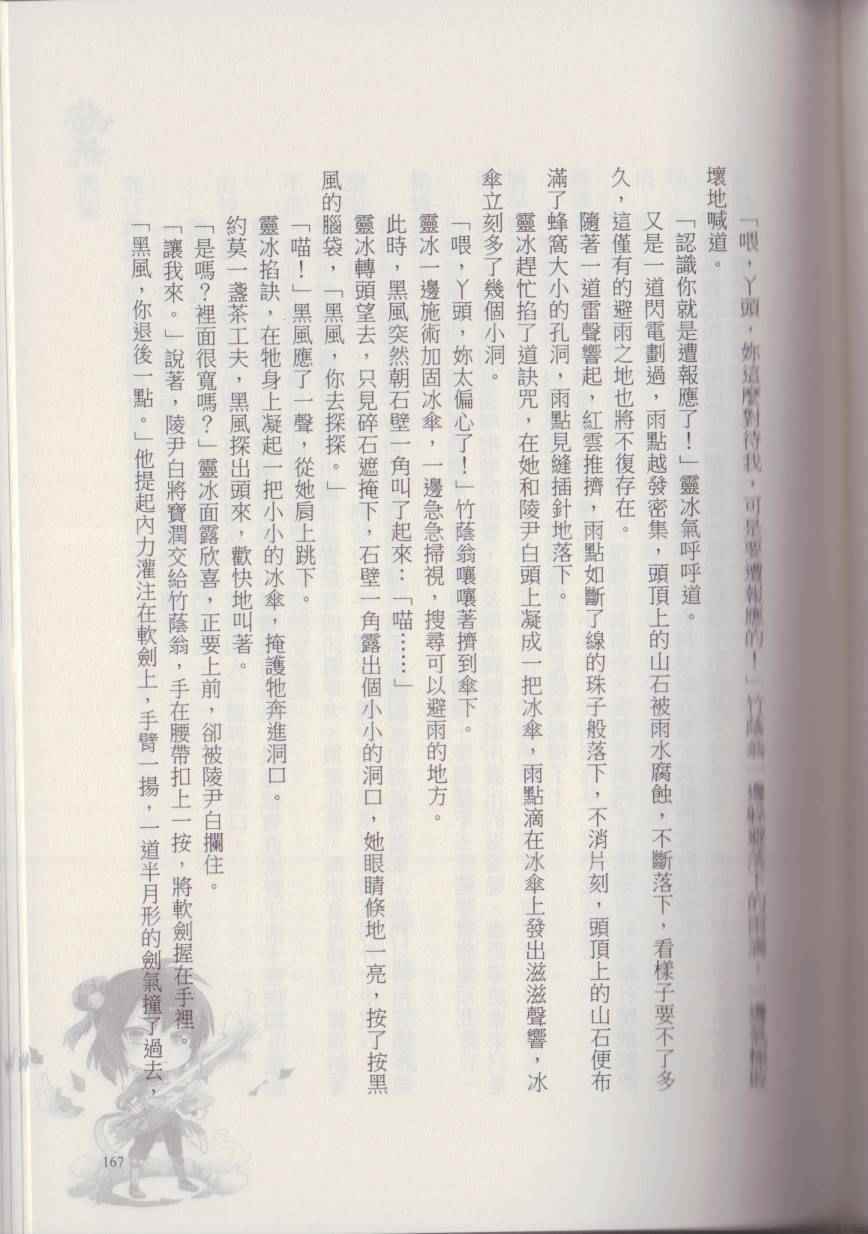 「喂，丫頭，妳這麼對待我，可是要遭報應的！」竹蔭翁一邊
壞地喊道。
「認識你就是遭報應了！」靈冰氣呼呼道。
又是一道閃電劃過，雨點越發密集，頭頂上的山石被雨水腐蝕，不斷落下，看樣子要不了多
久，這僅有的避雨之地也將不復存在。
隨著一道雷聲響起，紅雲推擠，雨點如斷了線的珠子般落下，不消片刻，頭頂上的山石便布
滿了蜂窩大小的孔洞，雨點見縫插針地落下。
靈冰趕忙掐了道訣咒，在她和陵尹白頭上凝成一把冰傘，雨點滴在冰傘上發出滋滋聲響，冰
傘立刻多了幾個小洞。
「喂，丫頭，妳太偏心了！」竹蔭翁嚷嚷著擠到傘下。
靈冰一邊施術加固冰傘，一邊急急掃視，搜尋可以避雨的地方。
此時，黑風突然朝石壁一角叫了起來：「喵……」
靈冰轉頭望去，只見碎石遮掩下，石壁一角露出個小小的洞口，她眼睛倏地一亮，按了按黑
風的腦袋，「黑風，你去探探。」
「喵！」黑風應了一聲，從她肩上跳下。
靈冰掐訣，在牠身上凝起一把小小的冰傘，掩護牠奔進洞口。
約莫一盞茶工夫，黑風探出頭來，歡快地叫著。
「是嗎？裡面很寬嗎？」靈冰面露欣喜，正要上前，卻被陵尹白攔住。
「讓我來。」說著，陵尹白將寶潤交給竹蔭翁，手在腰帶扣上一按，將軟劍握在手裡。
「黑風，你退後一點。」他提起內力灌注在軟劍上，手臂一揚，一道半月形的劍氣撞了過去，
167